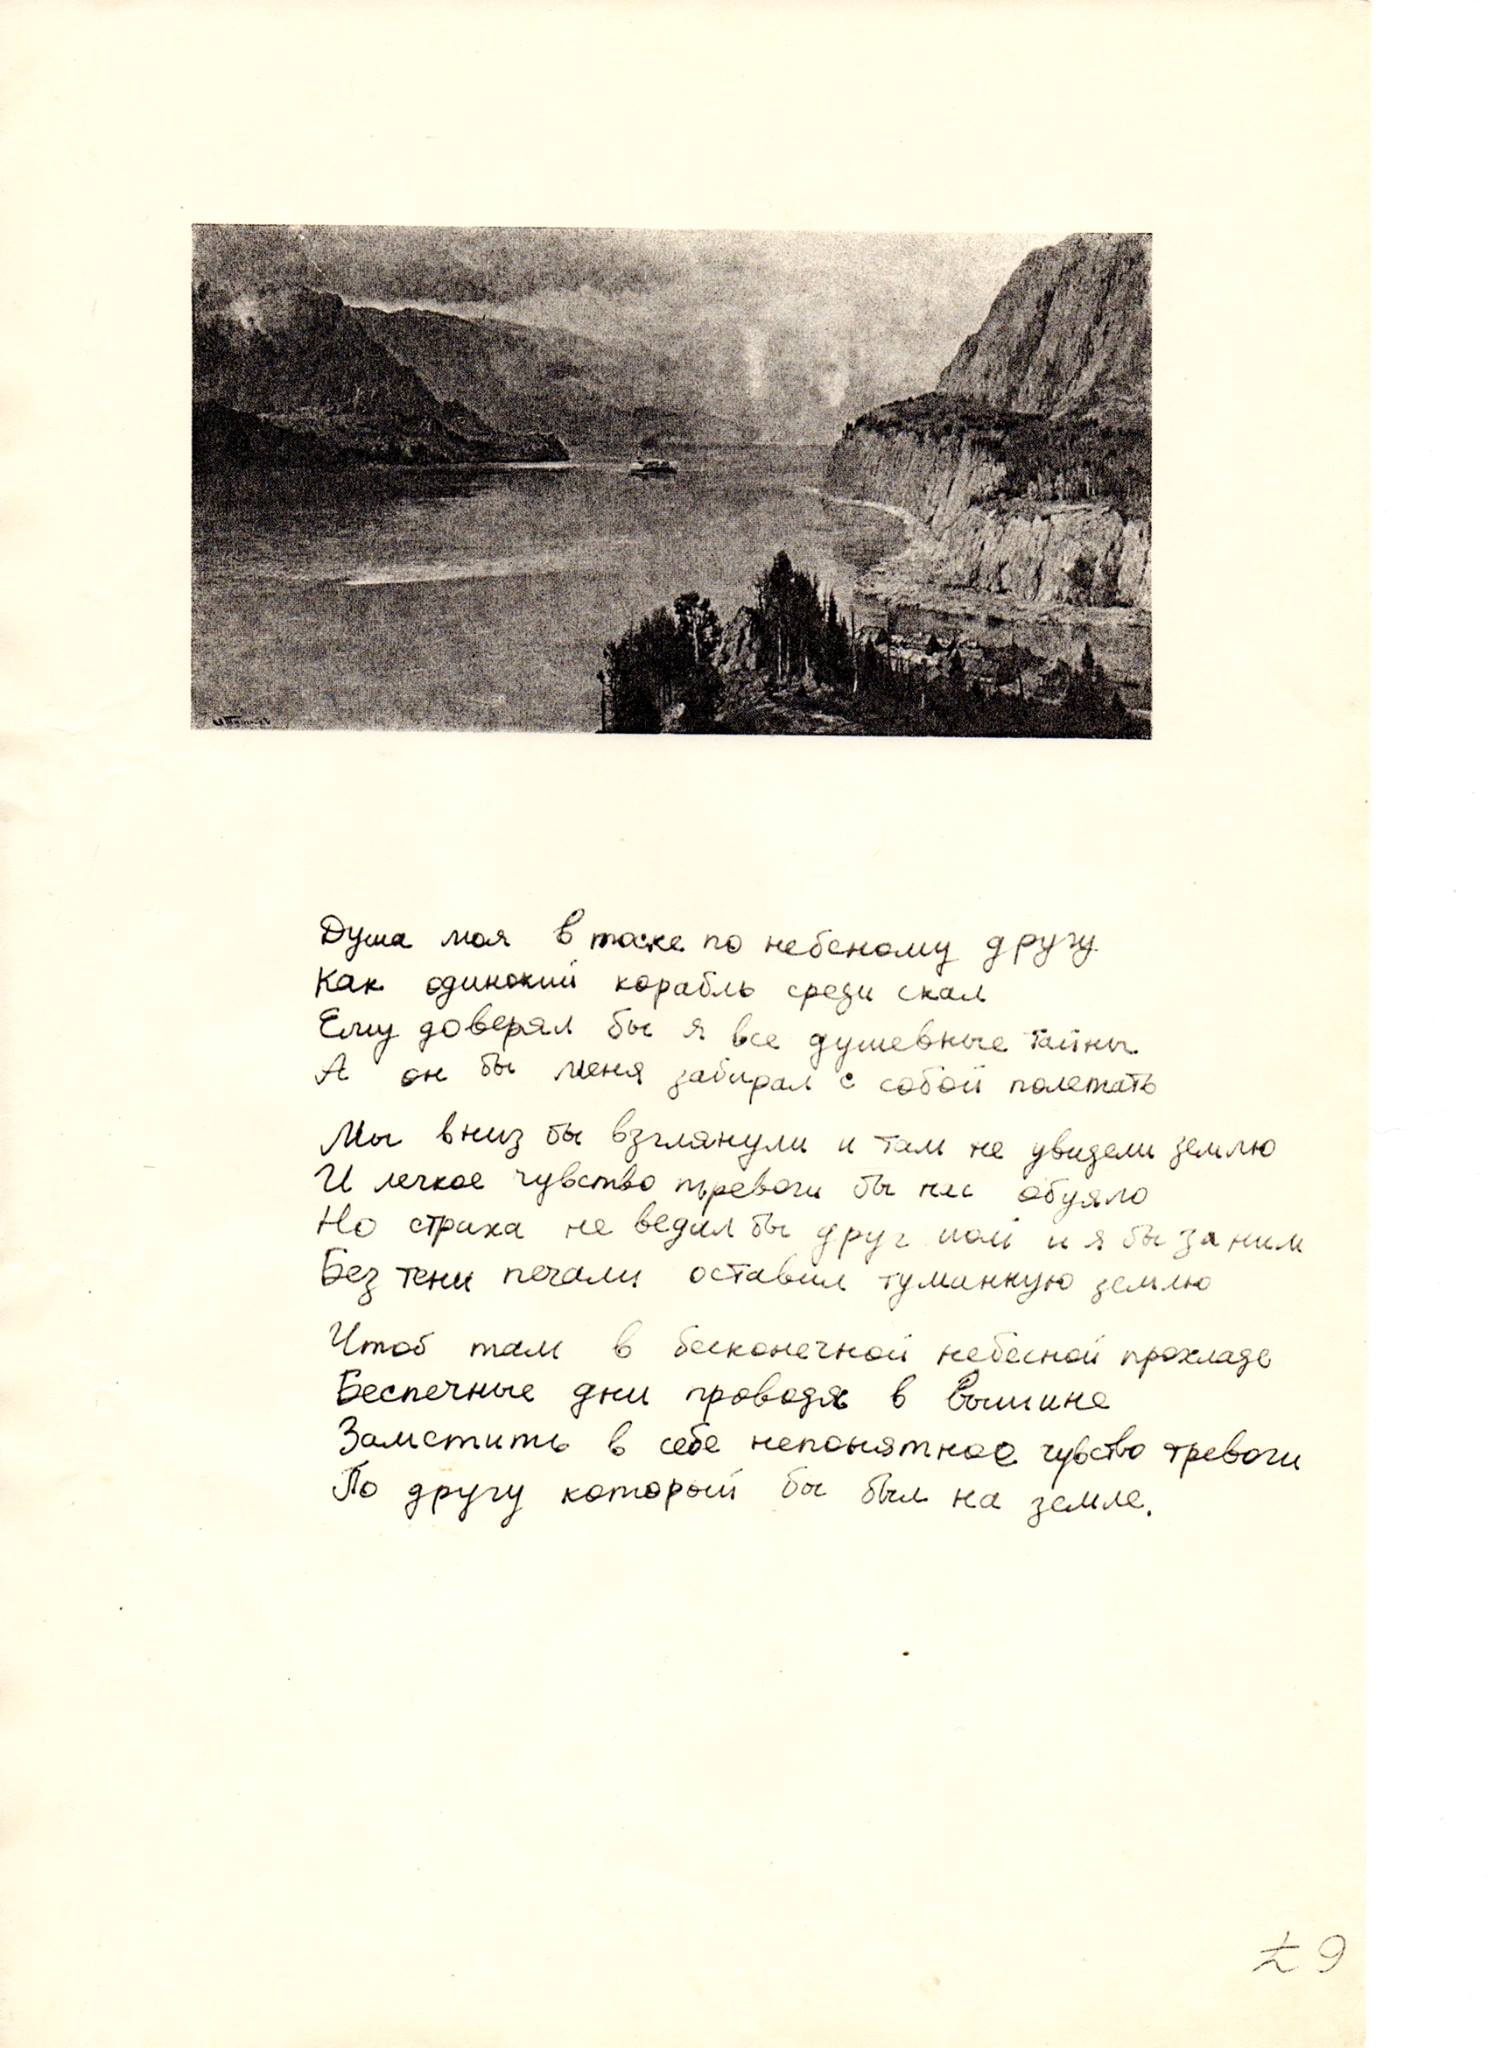 Душа моя в тоске по небеному другу
Как одинокий корабль среди скал
Ему доверял бы я все душевные тайны
А он бы меня забирал с собой полетать
Мы вниз бы взглянули и там не увидели землю
И легкое чувство тревоги бы нас обуяло
Но страха не ведал бы друг мой и я бы за ним
Без тени печали оставил туманную землю
Чтоб там в бесконечной небесной прохладе
Беспечные дни проводя в вышине
Заместить в себе непонятное чувство тревоги
По другу который бы был на земле.